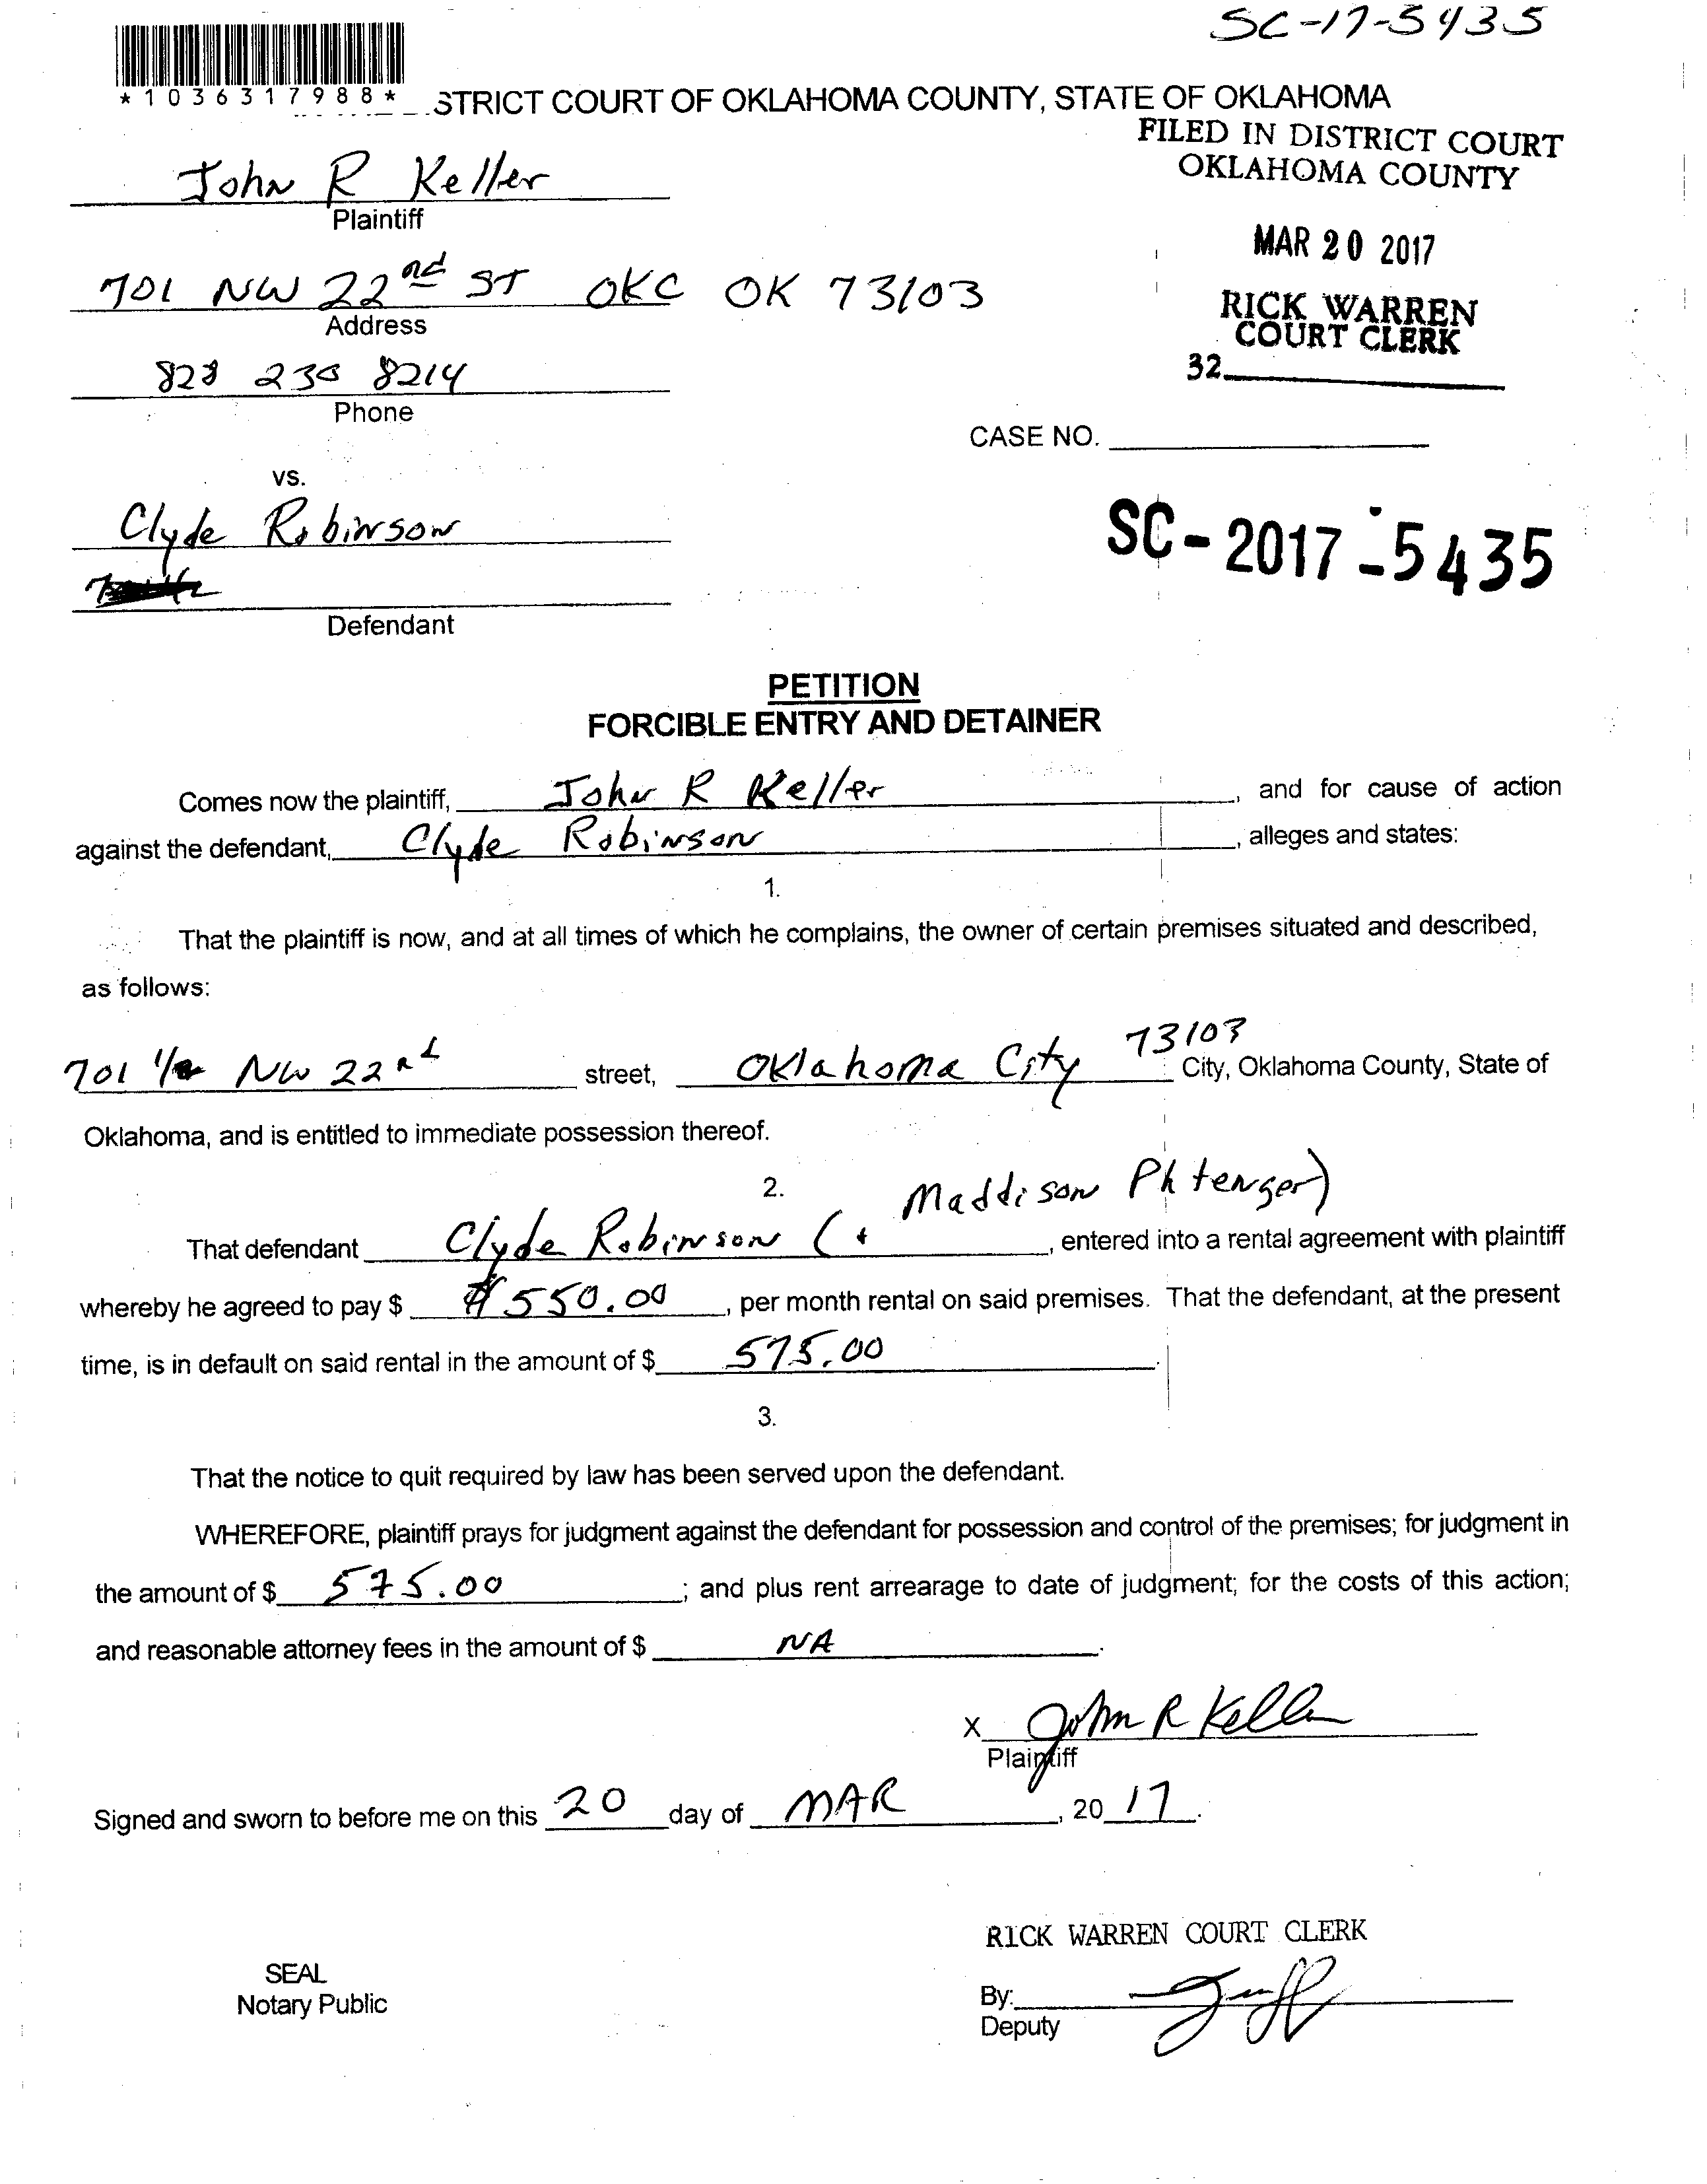 SC-17-5435
*1036317988* STRICT COURT OF OKLAHOMA COUNTY, STATE OF OKLAHOMA
FILED IN DISTRICT COURT
OKLAHOMA COUNTY
John R Keller
Plaintiff
MAR 20 2017
701 NW 22nd ST OKC OK 73103
Address
RICK WARREN
COURT CLERK
32
8214
Phone
CASE NO.
vs.
Clyde Robinson
SC-2017-5435
Defendant
PETITION
FORCIBLE ENTRY AND DETAINER
Comes now the plaintiff, John R Keller, and for cause of action
against the defendant, Clyde Robinson, alleges and states:
1.
That the plaintiff is now, and at all times of which he complains, the owner of certain premises situated and described,
as follows:
701 1/2 NW 22nd street, Oklahoma City 73103 City, Oklahoma County, State of
Oklahoma, and is entitled to immediate possession thereof.
2.
That defendant Clyde Robinson (+ Maddison, entered into a rental agreement with plaintiff
whereby he agreed to pay $ $550.00, per month rental on said premises. That the defendant, at the present
time, is in default on said rental in the amount of $ 575.00.
3.
That the notice to quit required by law has been served upon the defendant.
WHEREFORE, plaintiff prays for judgment against the defendant for possession and control of the premises; for judgment in
the amount of $ 575.00; and plus rent arrearage to date of judgment; for the costs of this action;
and reasonable attorney fees in the amount of $ NA.
X John R Keller
Plaintiff
Signed and sworn to before me on this 20 day of MAR, 20 17.
RICK WARREN COURT CLERK
SEAL
Notary Public
By:
Deputy